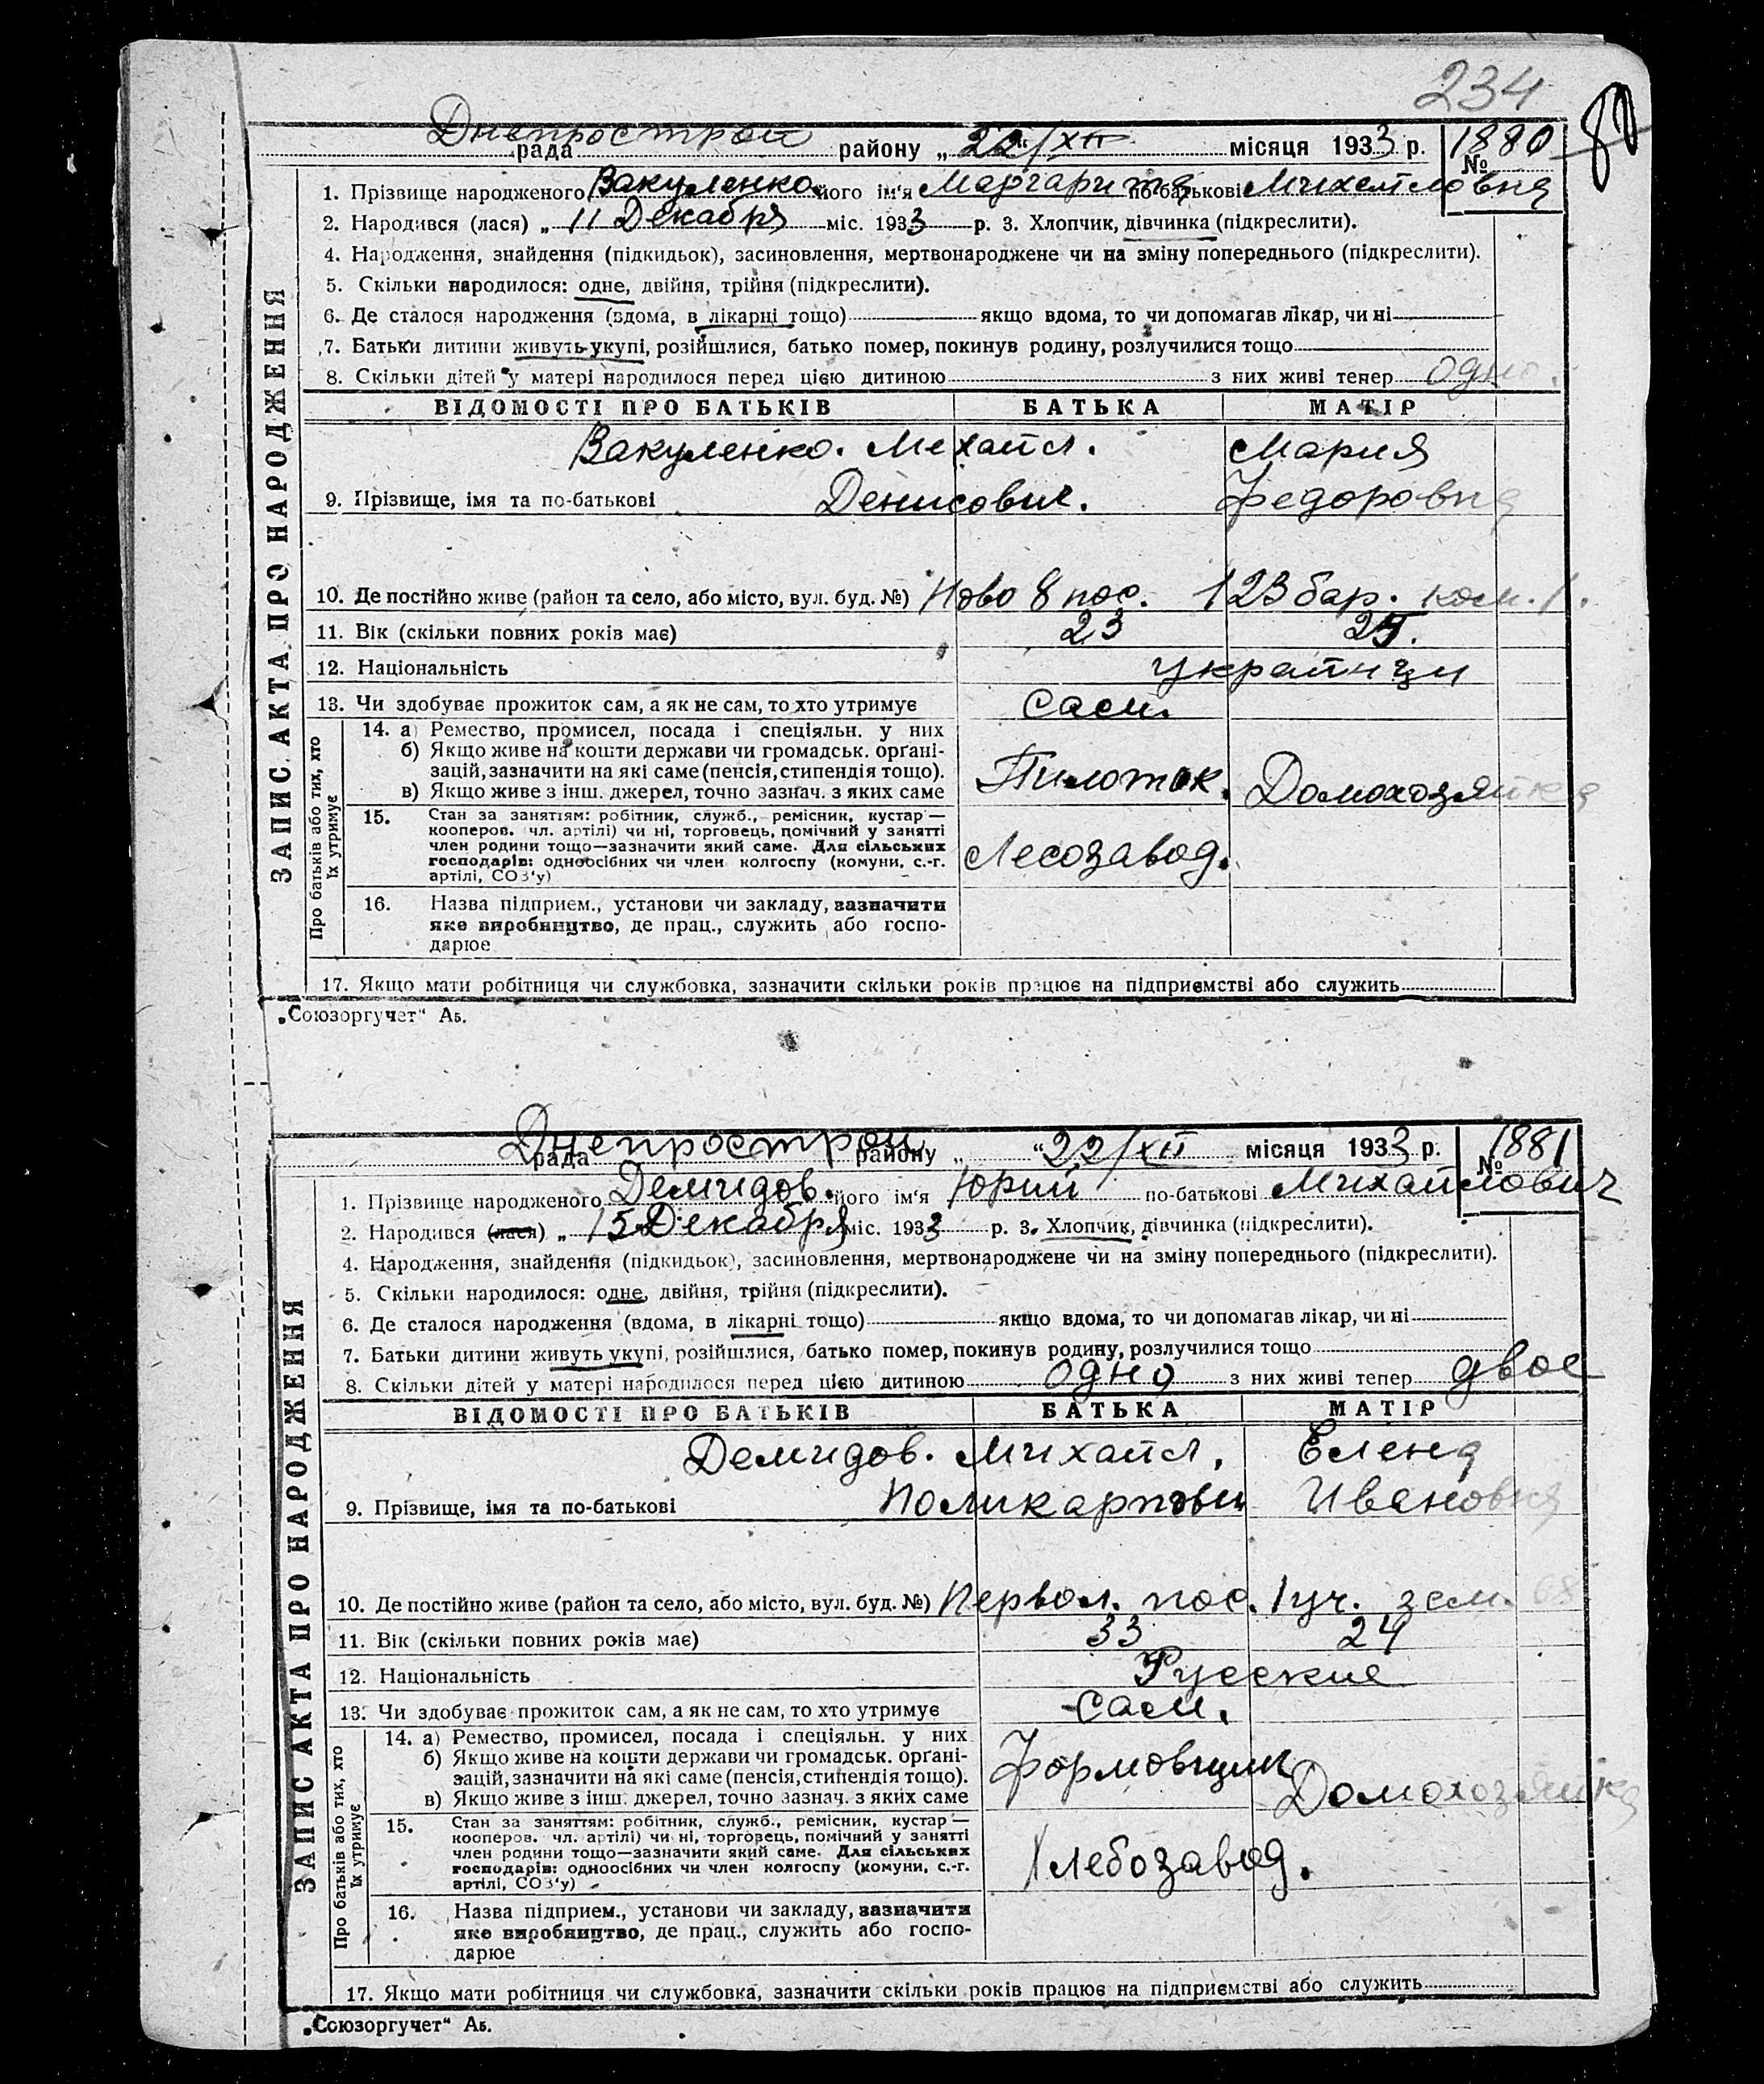 234
80
Днепрострой
рада району „ 22/XII місяця 1933 р. № 1880
1. Прізвище народженого Вакуленко. його ім'я Маргарита по-батькові Михайловна
2. Народився (лася) „ 11 Декабря міс. 1933 р. 3. Хлопчик, дівчинка (підкреслити).
4. Народження, знайдення (підкидьок), засиновлення, мертвонароджене чи на зміну попереднього (підкреслити).
5. Скільки народилося: одне, двійня, трійня (підкреслити).
6. Де сталося народження (вдома, в лікарні тощо) якщо вдома, то чи допомагав лікар, чи ні
7. Батьки дитини живуть укупі, розійшлися, батько помер, покинув родину, розлучилися тощо
8. Скільки дітей у матері народилося перед цією дитиною з них живі тепер одно.
ЗАПИС АКТА ПРО НАРОДЖЕННЯ
ВІДОМОСТІ ПРО БАТЬКІВ БАТЬКА МАТІР
Вакуленко. Михайл. Мария
9. Прізвище, імя та по-батькові Денисович. Федоровна
10. Де постійно живе (район та село, або місто, вул. буд. №) Ново 8 пос. 123 бар. ком. 1.
11. Вік (скільки повних років має) 23
12. Національність украйнци
13. Чи здобуває прожиток сам, а як не сам, то хто утримує сам.
Про батьків або тих, хто
їх утримує
14. а) Ремество, промисел, посада і спеціяльн. у них
б) Якщо живе на кошти держави чи громадськ. орґані-
зацій, зазначити на які саме (пенсія, стипендія тощо).
в) Якщо живе з інш. джерел, точно зазнач. з яких саме
Домохозяйка
15. Стан за заняттям: робітник, служб., ремісник, кустар —
кооперов. чл. артілі) чи ні, торговець, помічний у занятті
член родини тощо—зазначити який саме. Для сільських
господарів: одноосібних чи член колгоспу (комуни, с.-г.
артілі, СОЗ'у)
Лесозавод.
16. Назва підприєм., установи чи закладу, зазначити
яке виробництво, де прац., служить або госпо-
дарює
17. Якщо мати робітниця чи службовка, зазначити скільки років працює на підприємстві або служить
„Союзоргучет“ Аб.
Днепрострой
рада району „ “ 22/XII місяця 1933 р. № 1881
1. Прізвище народженого Демидов. його ім'я Юрий по-батькові Михайлович
2. Народився (лася) „ 15 Декабря міс. 1933 р. 3. Хлопчик, дівчинка (підкреслити).
4. Народження, знайдення (підкидьок), засиновлення, мертвонароджене чи на зміну попереднього (підкреслити).
5. Скільки народилося: одне, двійня, трійня (підкреслити).
6. Де сталося народження (вдома, в лікарні тощо) якщо вдома, то чи допомагав лікар, чи ні
7. Батьки дитини живуть укупі, розійшлися, батько помер, покинув родину, розлучилися тощо
8. Скільки дітей у матері народилося перед цією дитиною одно з них живі тепер двое
ЗАПИС АКТА ПРО НАРОДЖЕННЯ
ВІДОМОСТІ ПРО БАТЬКІВ БАТЬКА МАТІР
Демидов. Михайл. Елена
9. Прізвище, імя та по-батькові Поликарпович Ивановна
10. Де постійно живе (район та село, або місто, вул. буд. №) Первом. пос. 1 уч. зем. 68
11. Вік (скільки повних років має) 33 24
12. Національність Русские
13. Чи здобуває прожиток сам, а як не сам, то хто утримує сам.
Про батьків або тих, хто
їх утримує
14. а) Ремество, промисел, посада і спеціяльн. у них
б) Якщо живе на кошти держави чи громадськ. орґані-
зацій, зазначити на які саме (пенсія, стипендія тощо).
в) Якщо живе з інш. джерел, точно зазнач. з яких саме
Формовщик Домохозяйка
15. Стан за заняттям: робітник, служб., ремісник, кустар —
кооперов. чл. артілі) чи ні, торговець, помічний у занятті
член родини тощо—зазначити який саме. Для сільських
господарів: одноосібних чи член колгоспу (комуни, с.-г.
артілі, СОЗ'у)
Хлебозавод.
16. Назва підприєм., установи чи закладу, зазначити
яке виробництво, де прац., служить або госпо-
дарює
17. Якщо мати робітниця чи службовка, зазначити скільки років працює на підприємстві або служить
„Союзоргучет“ Аб.